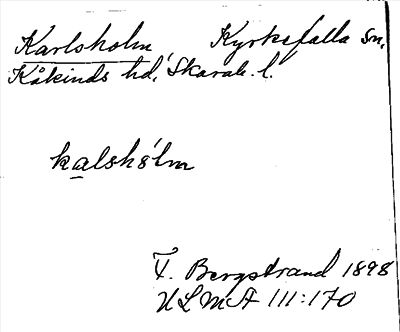 Karlsholm, Kyrkefalla sn,
Kåkinds hd, Skarab. l.
kalshólm
V. Bergstrand 1898
ULMA 111:170